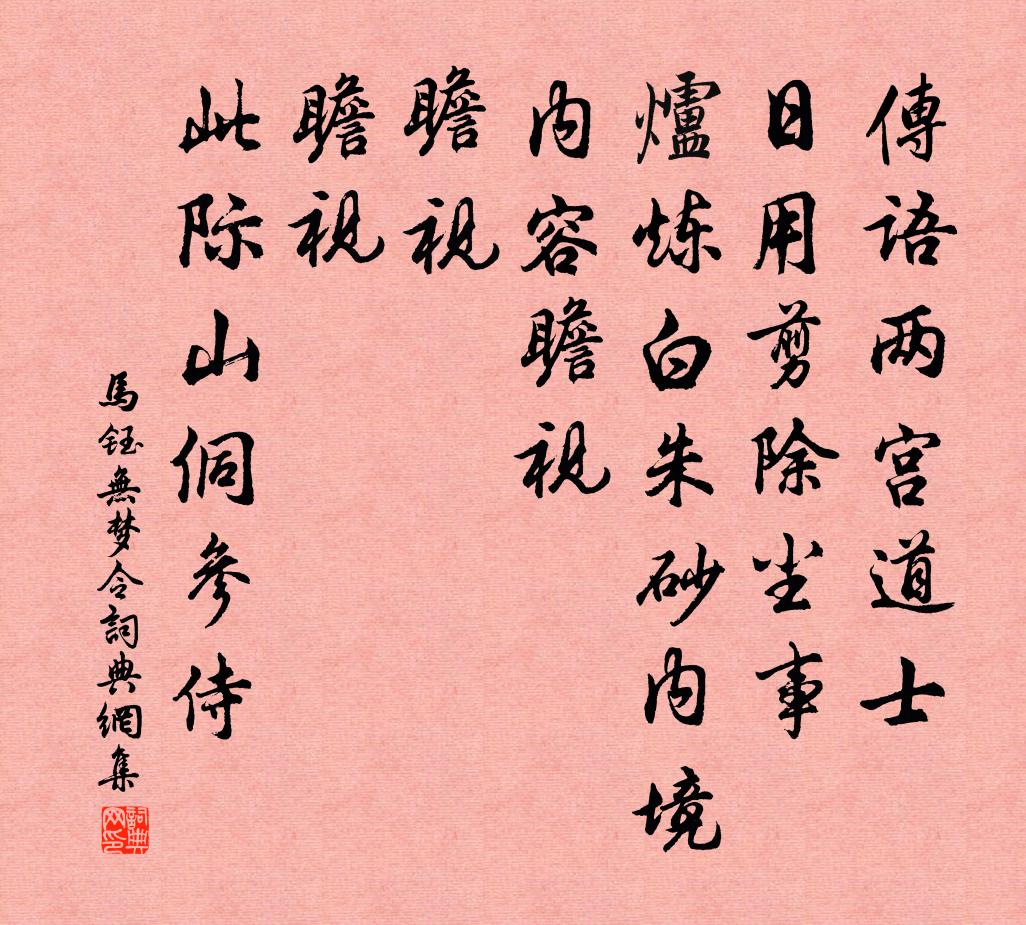 傳語两宫道士
日用剪除尘事
爐炼白朱砂内境
内容瞻视
瞻视
瞻视
此际山侗參侍
馬鈺無梦令詞典網集
詞典网印